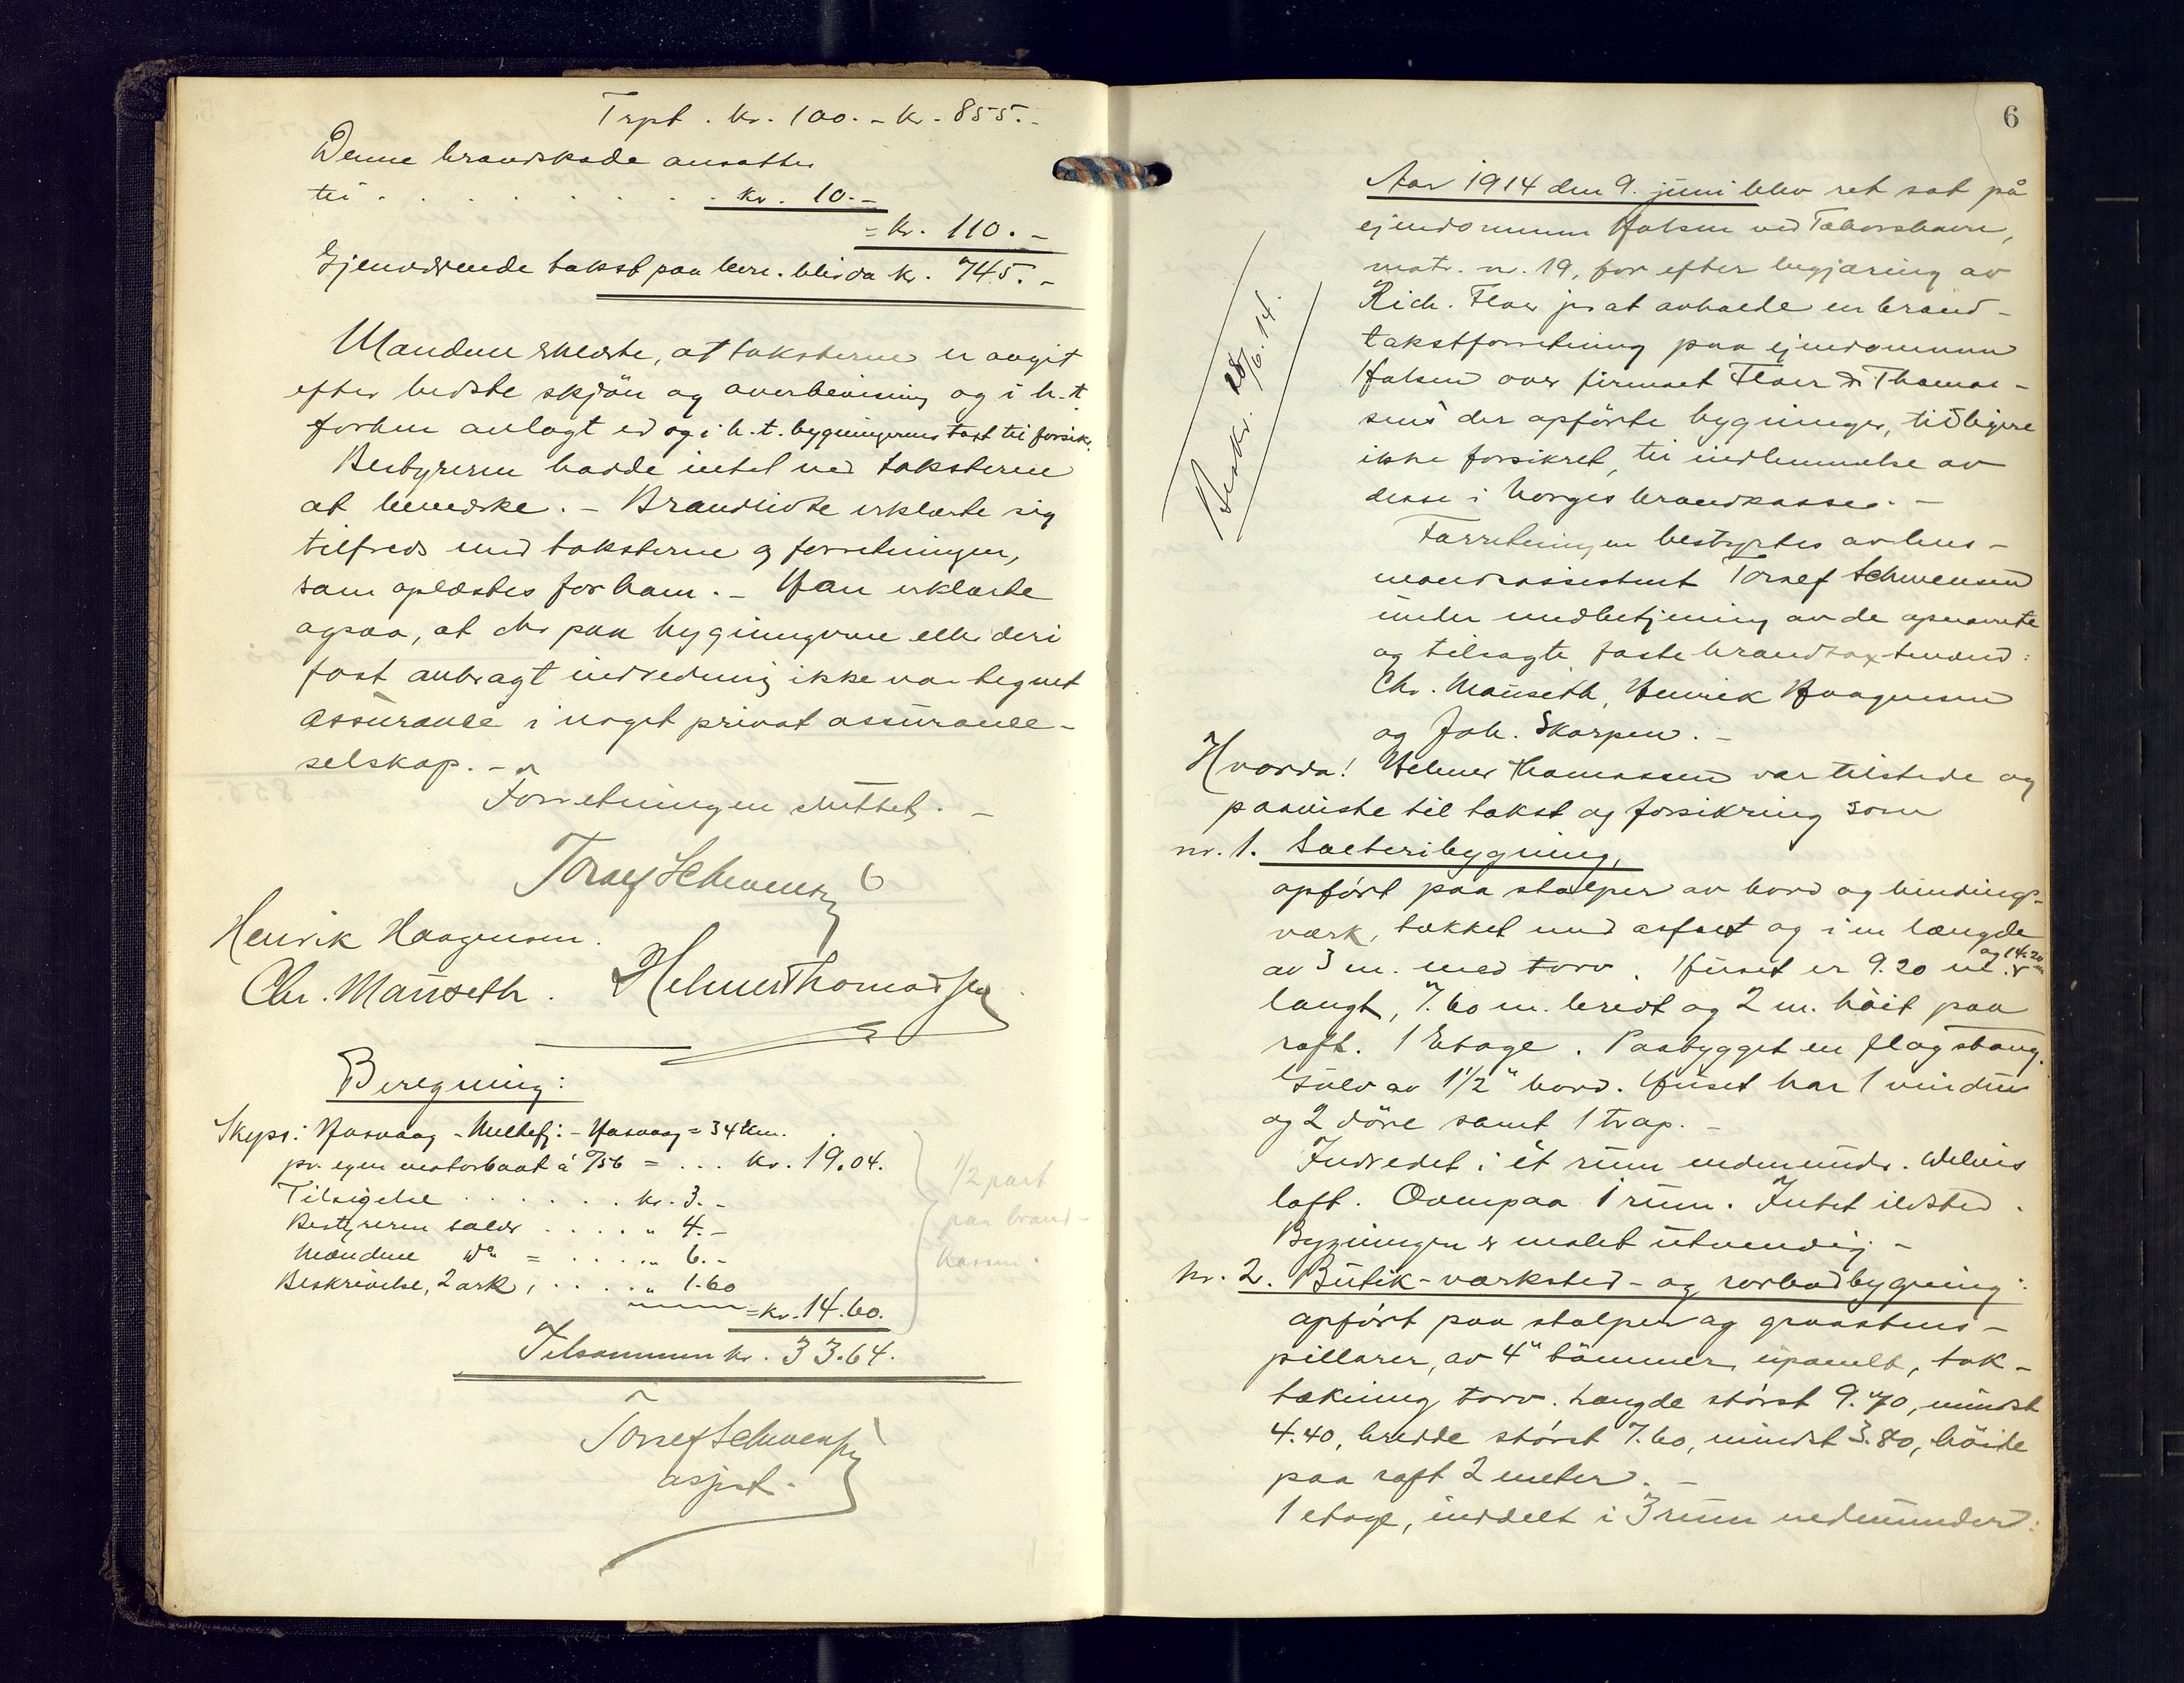 Trpt. kr. 100.- kr. 855.-
Denne brandskade ansattes
til . . . . . . . . kr. 10.-
= kr. 110.-
Gjenværende takst paa bevn. blir da kr. 745.-
Mændene erklærte, at taksterne er avgit
efter bedste skjøn og overbevisning og i h. t.
forhen avlagt ed og i h. t. bygningernes tast til forsikr.
Bestyreren havde intet ved taksterne
at bemerke. - Brandlidte erklærte sig
tilfreds med taksterne og forretningen,
som oplæstes for ham. - Han erklærte
ogsaa, at der paa bygningerne eller deri
fast anbragt indredning ikke var tegnet
assurance i noget privat assurance-
selskap. -
Forretningen sluttet. -
Toralf Schwensen
Henrik Haagensen.
Chr. Mauseth. Helmer Thomassen
Beregning:
Skyss: Hasvaag - Meltefj: - Hasvaag = 34 km.
pr. egen motorbaat á 0/56 = ... kr. 19.04.
Tilsigelse . . . . . . kr. 3.-
Bestyreren salær . . . . . " 4.-
Mændene do = . . . . . " 6.-
Beskrivelse, 2 ark, . . . . " 1.60
= kr. 14.60.
Tilsammen kr. 33.64.
1/2 part
paa brand-
kassen.
Toralf Schwensen
assist.
6
Aar 1914 den 9. juni blev ret sat på
ejendommen Halsen ved Taborshavn,
matr. nr. 19, for efter begjæring av
Rich. Floer jr. at avholde en brand-
takstforretning paa ejendommen
Halsen over firmaet Floer & Thomas-
sens der opførte bygninger, tidligere
ikke forsikret, til indlemmelse av
desse i Norges brandkasse. -
Beskr. 28/6. 14.
Forretningen bestyrtes av lens-
mandsassistent Toralf Schwensen
under medbetjening av de opnævnte
og tilsagte faste brandtaxtmænd:
Chr. Mauseth, Henrik Haagensen
og Joh. Skarpen. -
Hvorda! Helmer Thomassen var tilstede og
paaviste til takst og forsikring som
nr. 1. Salteribygning,
opført paa stolper av bord og bindings-
værk, tækket med asfalt og i en længde
av 3 m. med torv. Huset er 9.20 m. og 14.20 m
langt, 7.60 m. bredt og 2 m. høit paa
raft. 1 Etage. Paabygget en flagstang.
Gulv av 1 1/2" bord. Huset har 1 vindu
og 2 döre samt 1 trap. -
Indredet i ét rum nedenunder. Delvis
loft. Ovenpaa 1 rum. Intet ildsted.
Bygningen er malet utvendig. -
Nr. 2. Butik-værksted- og rorbodbygning:
opført paa stolper og graastens-
pillarer, av 4" tømmer, upanelt, tak-
tækning torv. Længde störst 9.70, mindst
4.40, bredde störst 7.60, mindst 3.80, höide
paa raft 2 meter. -
1 etage, inddelt i 3 rum nedenunder: